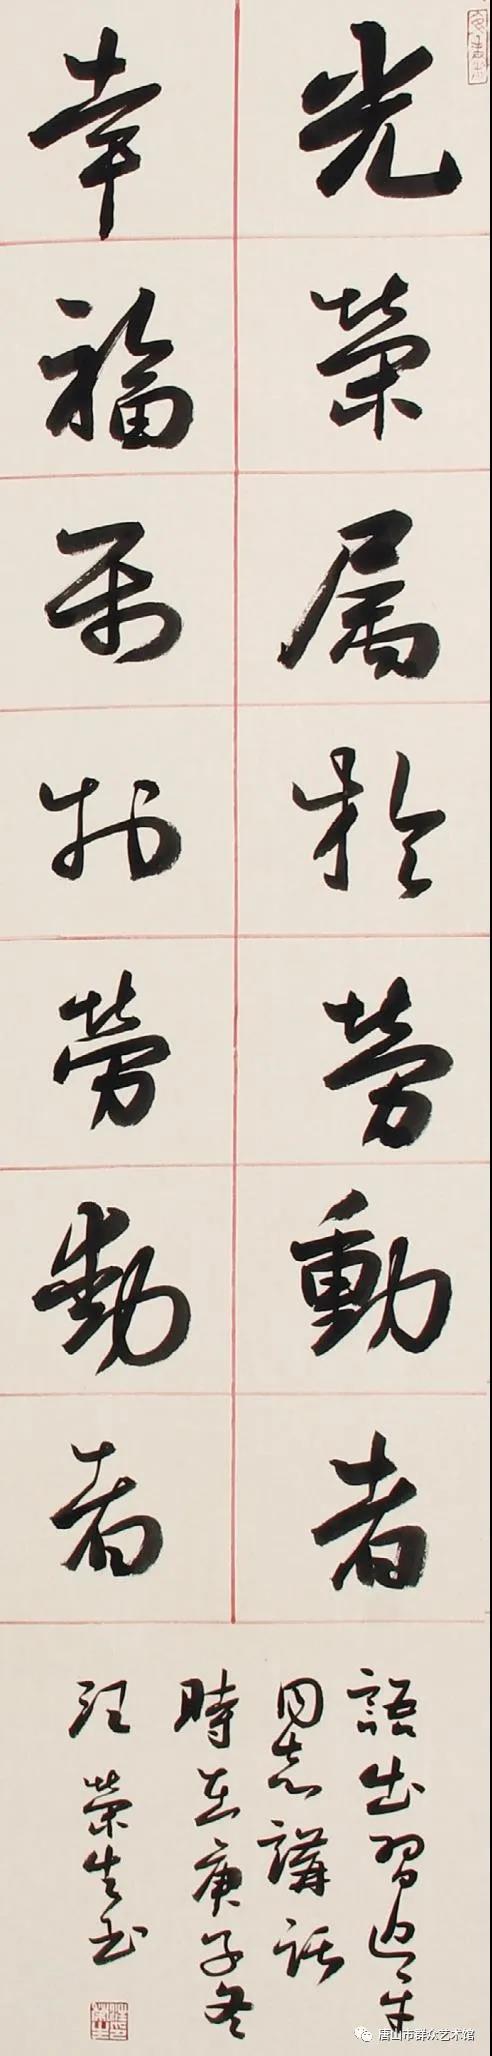 光榮属於勞動者
幸福属於勞動者
語出習近平
同志講話
時在庚子冬
汪榮生书
唐山市群众艺术馆